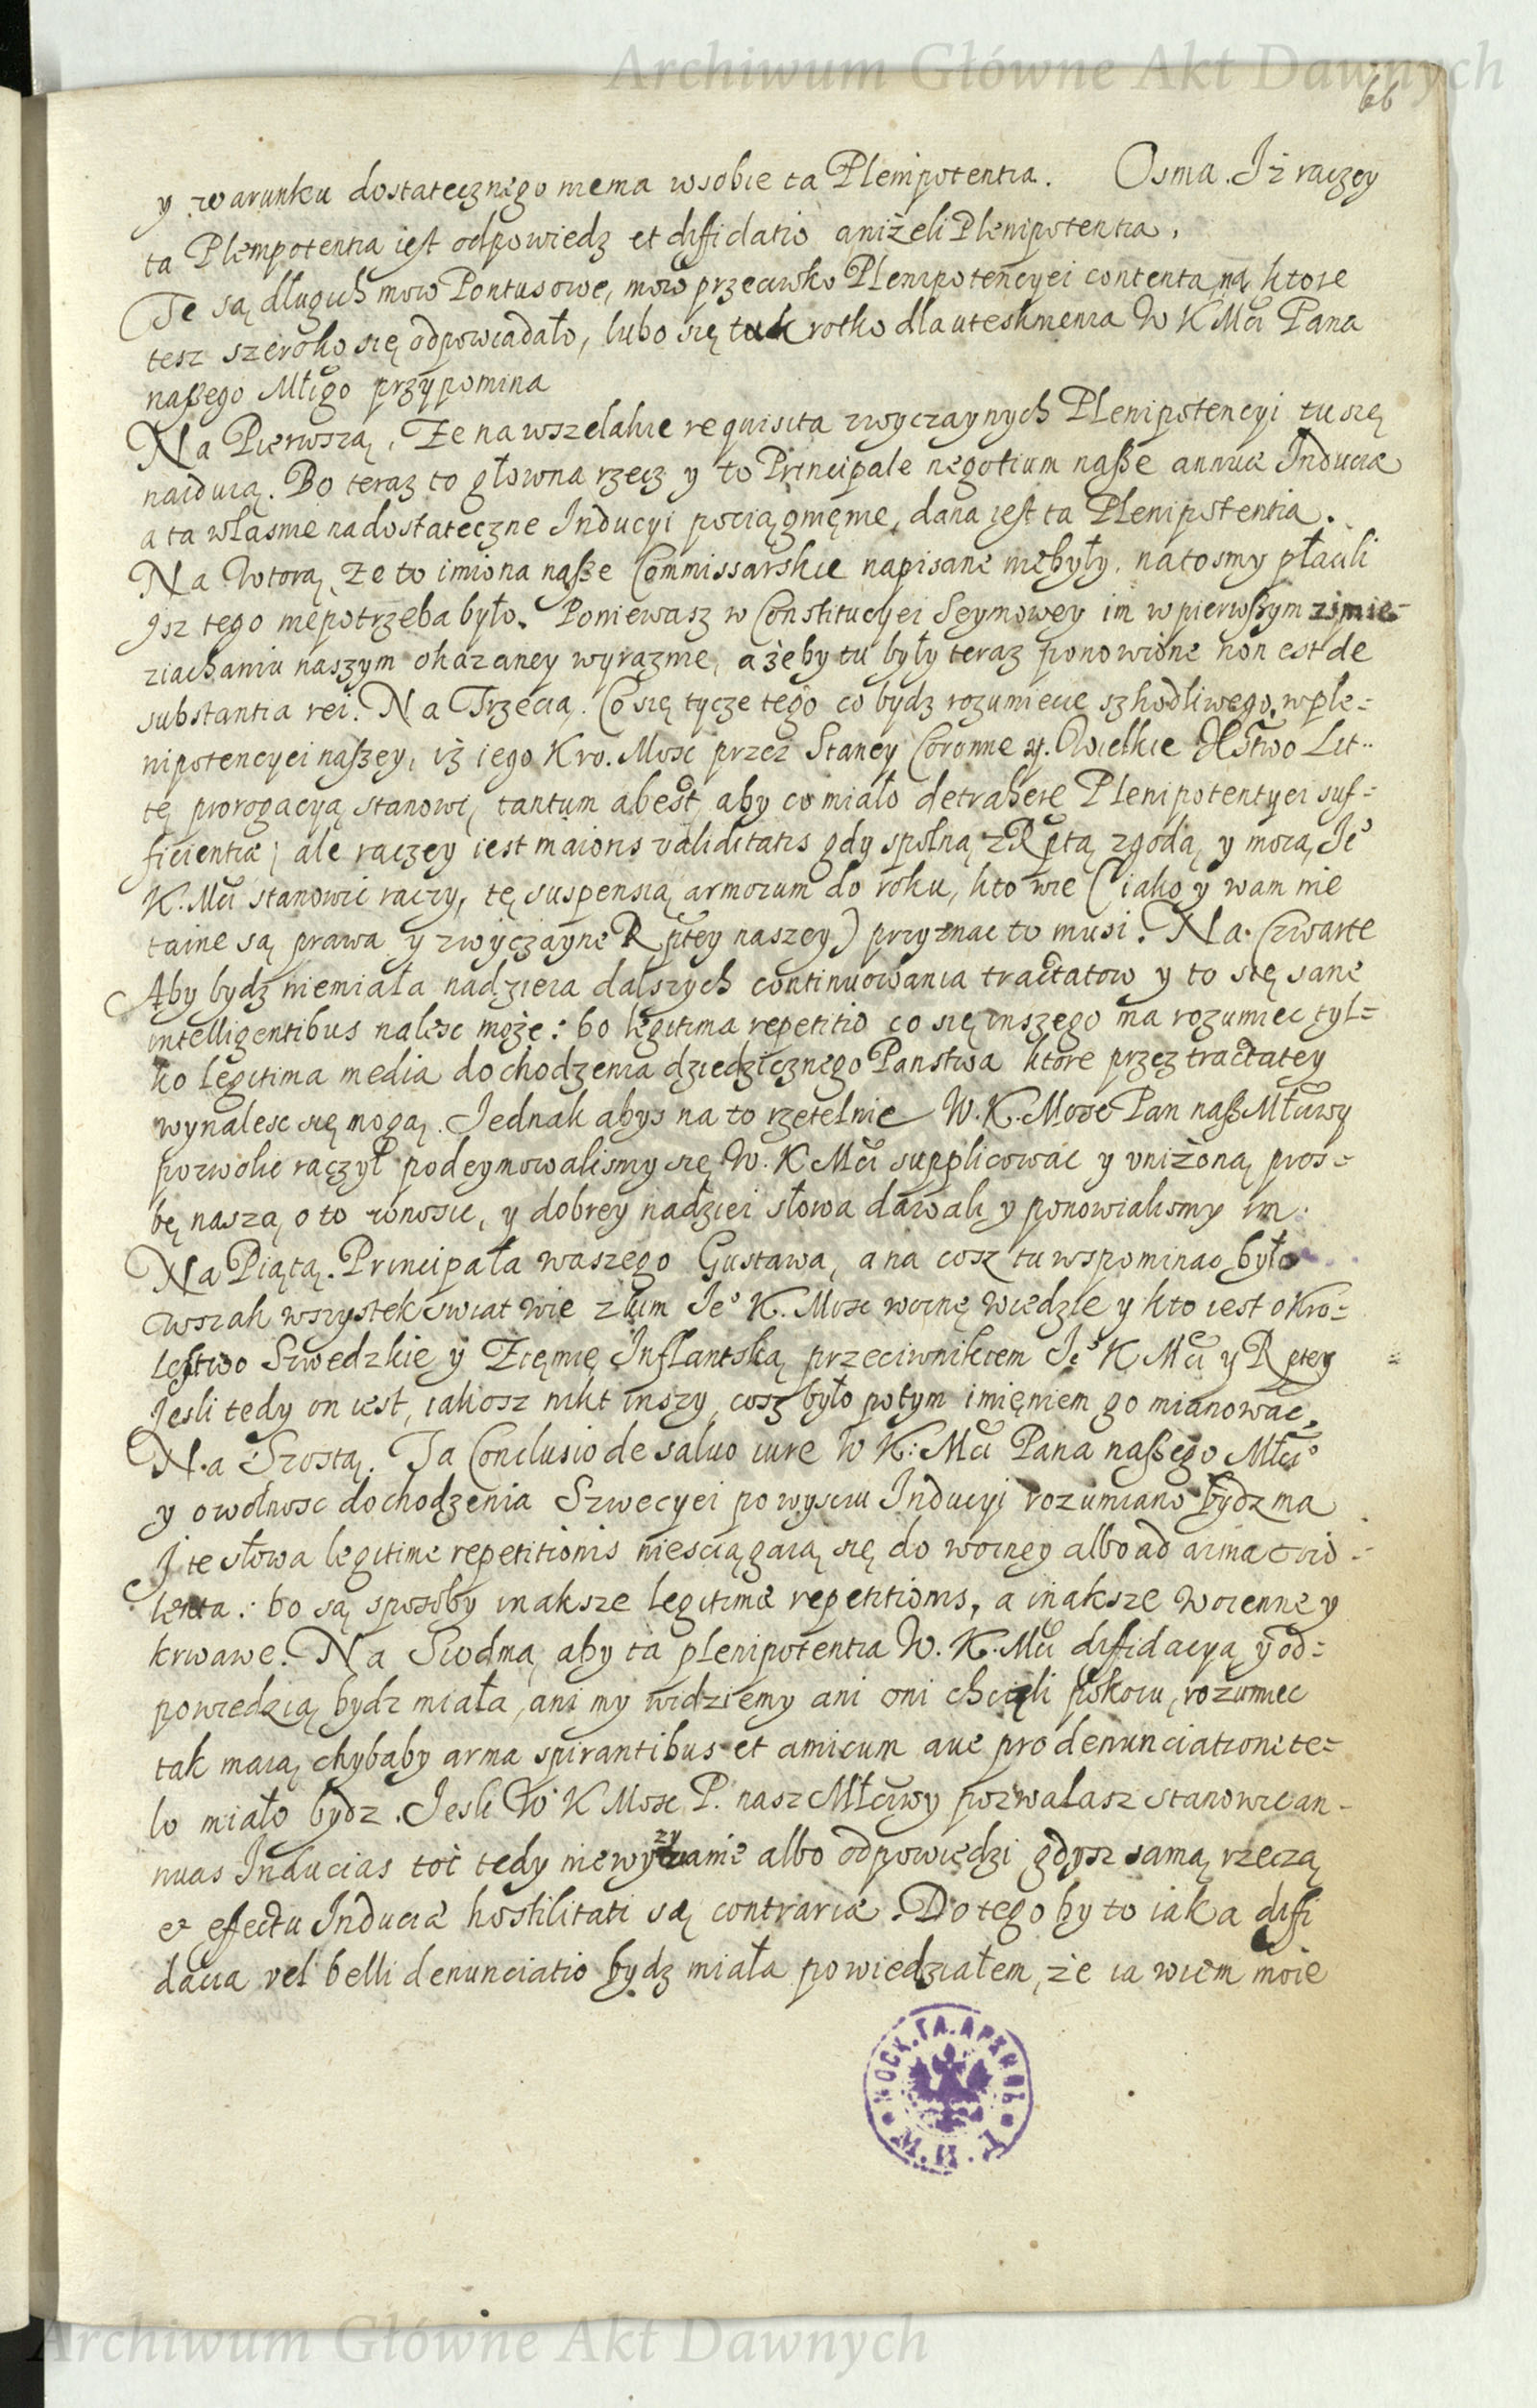 Archiwum Główne Akt Dawnych
66
y warunku dostatecznego niema wsobie ta Plenipotentia. Osma. Iż raczey
ta Plenipotentia iest odpowiedz et diffidatio aniżeli Plenipotentia.
Te są długich mow Pontusowe, mow przeciwko Plenipotencyei contenta, ną ktore
tesz szeroko się odpowiadało, lubo się tu krotko dla uteskmienia W K Mći Pana
naßego Młćigo przypomina
Na Pierwszą. Że na wszelakie requisita zwyczaynych Plenipotencyi tu się
naiduią. Bo teraz to głowna rzecz y to Principale negotium naße annuæ Induciæ
a ta własnie na dostateczne Inducyi pociągnięnie, dana iest ta Plenipotentia.
Na Wtorą, że to imiona naße Commissarskie napisane niebyły, na tosmy płacili
Isz tego niepotrzeba było. Poniewasz w Constitucyei Seymowey im w pierwßym
ziachaniu naszym okazaney wyraznie, a żeby tu były teraz ponowione non est de
substantia rei. Na Trzecią. Co się tycze tego co bydz rozumiecie szkodliwego, w ple-
nipotencyei naßey, iż iego Kro. Mosc przez Staney Coronne y. Wielkie Xstwo Lit..
tę prorogacyą stanowi, tantum abest aby co miało detrahere Plenipotentyei suf-
ficientiæ; ale raczey iest maioris validitatis gdy spolną z Rptą zgodą y mocą Ie°
K. Mći stanowić raczy, tę suspensią armorum do roku, kto wie (iako y wam nie
taine są prawa y zwyczayne Rptey naszey) przyznac to musi. Na Czwarte
Aby bydz niemiała nadzieia dalszych continuowania tractatow y to się sane
intelligentibus nalesc może: bo legitima repetitio co się inszego ma rozumiec tyl-
ko legitima media dochodzenia dziedzicznego Panstwa ktore przez tractatey
wynalesc się mogą. Jednak abys na to rzetelnie W. K. Mosc Pan naß Młćiwy
pozwolic raczył podeymowalismy się W. K Mći supplicowac y vniżoną pros-
bę naszą o to wnosic, y dobrey nadziei słowa dawali y ponowialismy im.
Na Piątą. Principała waszego Gustawa, a na cosz tu wspominac było
wszak wszystek swiat wie z kim Ie° K. Mosc woinę wiedzie y kto iest o Kro-
lestwo Szwedzkie y Ziemię Inflantską przeciwnikiem Ie° K Mći y Rptey
Iesli tedy on iest, iakosz nikt inszy, cosz było potym imięniem go mianowac,
Na Szostą. Ta Conclusio de saluo iure W K: Mći Pana naßego Młći°
y o wolnosc dochodzenia Szwecyei po wysciu Inducyi rozumiano bydz ma
I te słowa legitime repetitionis niesciągaią się do woiney albo ad arma vio-
lenta: bo są sposoby inaksze legitimæ repetitionis, a inaksze woienne y
krwawe. Na Siodmą aby ta plenipotentia W. K. Mći diffidacyą y od-
powiedzią bydz miała, ani my widziemy ani oni chcieli pokoiu, rozumiec
tak maią chybaby arma spirantibus et amicum aue pro denunciatione te-
lo miało bydz. Iesli W K Mosc P. nasz Młćiwy pozwalasz stanowic an-
nuas Inducias toć tedy niewyzywanie albo odpowiedzi gdysz samą rzeczą
et effectu Induciæ hostilitati są contrariæ. Do tego by to iaka diffi
dacia vel belli denunciatio bydz miała powiedziałem, że ia wiem moie
МОСК. ГЛ. АРХИВЪ
М. И. Д.
Archiwum Główne Akt Dawnych